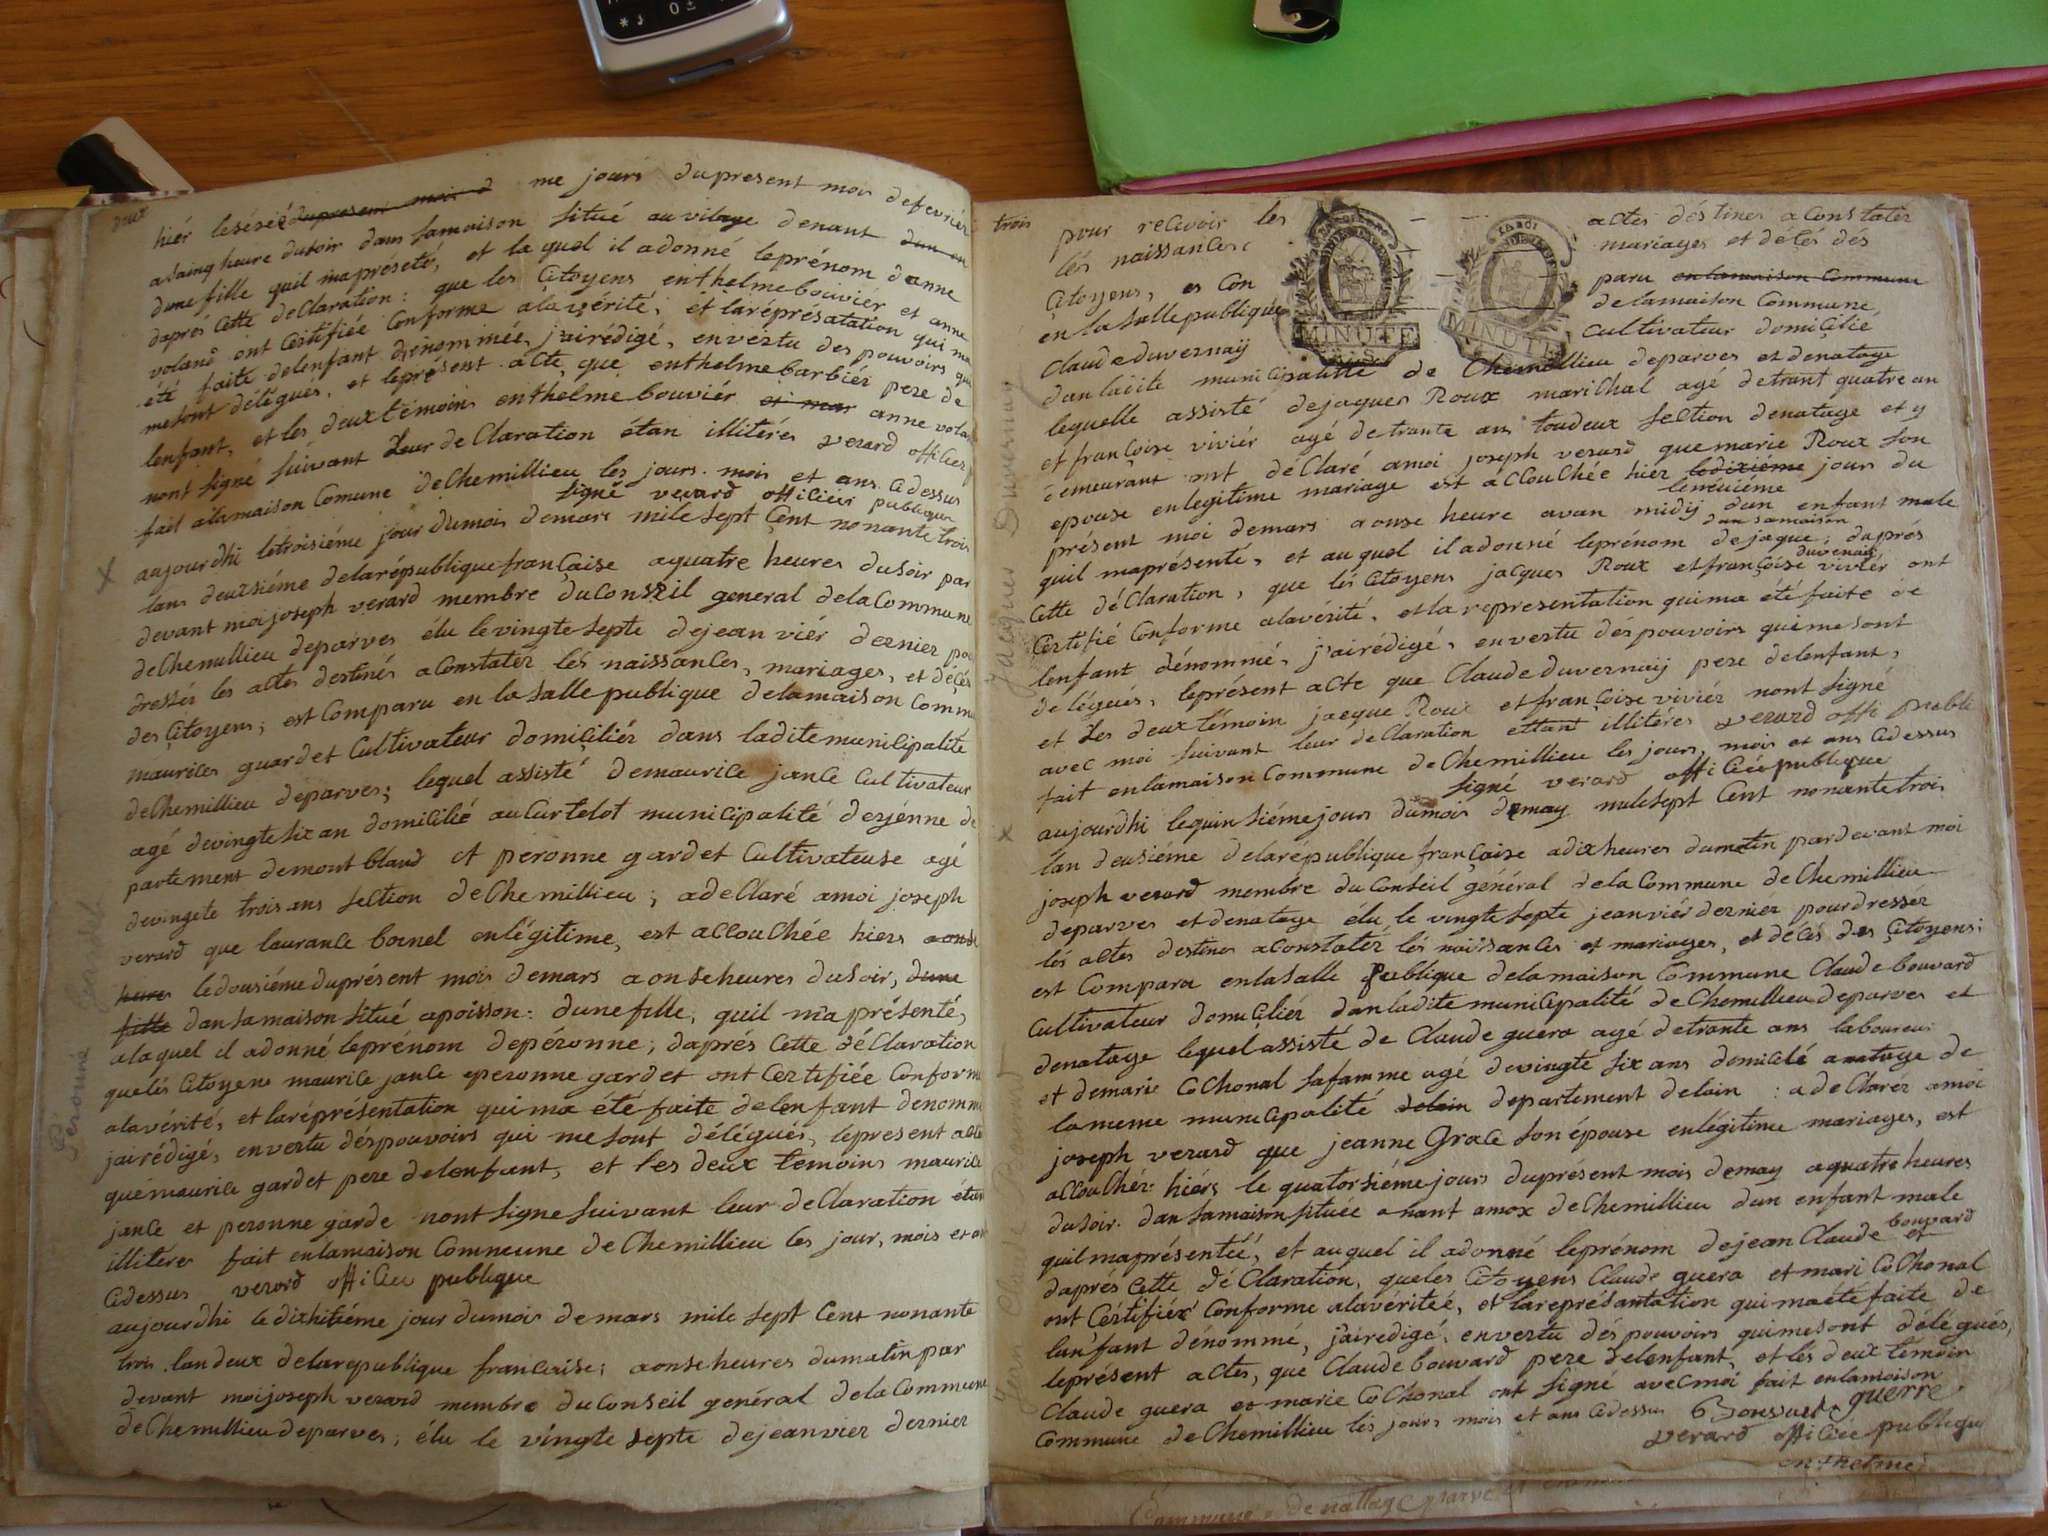 deux
hiér leséséé dupresent moi d me jours dupresent mois defevriér
asaing heure dusoir dans samaison situé au vilage denant dun en
dune fille quil mapréseté, et la quel il adonné leprénom danne
daprés Cette deClaration: que les Citoyens enthelmebouviér et anne
volans ont Certifiée Conforme alavérité; et laréprésatation qui ma
été faite delenfant dénommée, jairédigé, envertu des pouvoirs qui
mesont délégués, et leprésent acte que enthelmebarbiér pere de
lenfant, et les deux témoins enthelme bouviér et mar anne vola
nont signé suivant leur deClaration étan illitérés verard officier
fait alamaison Comune deChemillieu les jours mois et ans Cidessus
signé verard officier publique
aujourdhi letroisiéme jour dumois demars mile sept Cent nonante trois
lans deuxsiéme delarépublique française aquatre heures dusoir par
devant moi joseph verard membre duConseil general delaCommune
deChemillieu deparves élu levingte septe dejeanviér dernier pou
dressér les actes destinés aConstater lés naissances, mariages, et décés
des Citoyens; est Comparu en la sallepublique delamaison Comm
maurices guardet Cultivateur domiciliér dans laditemunicipalite
deChemillieu deparves; lequel assisté demaurice jance Cultivateur
agé devingte six an domicilié auCurtelot municipalité deyénne de
partement demontblaud et peronne gardet Cultivateuse agé
devingete trois ans section deChemillieu; adeClaré amoi joseph
verard que laurance bornel enlégitime, est accouchée hiers aonse
heures ledousiéme duprésent mois demars aonseheures dusoir, dune
fille dansamaison situé apoisson: dunefille, quil mapréséenté,
alaquel il adonné leprénom depéronne; daprés Cette déClaration
quelés Citoyens maurice jance eperonne gardet ont Certifiée Conforme
alavérité, et laréprésentation quima étéfaite delenfant denomm
jairédigé, envertu déspouvoirs qui mesont délégués, lepresent acte
quémaurice gardet pere delenfant, et les deux temoins maurice
jance et peronne garde nont signe suivant leur deClaration étan
illitéres fait enlamaison Commune deChemillieu les jour, mois et an
Cidessus verard officiee publique
aujourdhi ledixhitiéme jour dumois demars mile sept Cent nonante
trois lan deux delarepublique francaise; aonseheures dumatin par
devant moijoseph verard membre duConseil général delaCommune
deChemillieu deparves; élu le vingte septe dejeanvier dernier
péronne Gardet
trois
pour recevoir les actes déstines aConstater
lés naissances mariages et décés dés
Citoyens, es Con paru en lamaison Commune
en lasallepublique delamaison Commune
Claude duvernaÿ Cultivateur domicilié
MINUTE
MINUTE
danladite municipalité de Chemillieu deparves et denatage
lequelle assisté dejaques Roux marichal agé detrant quatre an
et françoise viviér agé detrante ans toudeux section denatage et y
demeurant ont déClaré amoi joseph verard quemarie Roux son
epouse enlegitime mariage est accouchée hiér ledixiéme jour du
leneuiéme
présent moi demars aonse heure avan midÿ dun enfant male
dan samaison
quil maprésenté, et auquel iladonné leprénom dejaque, daprés
duvernaÿ
Cette déClaration, que lés Citoyens jacques Roux etfrançoise viviér ont
Certifié Conforme alavérité, etlarepresentation quima étéfaite de
lenfant dénommé, jairédigé, envertu déspouvoirs quimesont
délégués, leprésent acte que Claude duvernaÿ pere delenfant,
et les deux témoin jacque Roux et françoise viviér nont signé
avec moi suivant leur deClaration ettant illiteres verard offi publi
fait enlamaison Commune deChemillieu les jours, mois et ans Cidessus
signé verard officiéepublique
aujourdhi lequinsiémejours dumois demay milesept Cent nonantetrois
lan deusiéme delarépublique française adixheures dumatin pardevant moi
joseph verard membre duConseil général delaCommune deChemillieu
deparves et denatage élu le vingte septe jeanviér dernier pourdressér
lés actes destines aConstatér lés naissances et mariages, et décés des Citoyens:
est Compara enlasalle publique delamaison Commune Claude bouvard
Cultivateur domiciliér danladite municipalité deChemillieu deparves et
denatage lequel assisté de Claude guera agé detrante ans laboureur
et demarie Cochonal safamme agé devingte six ans domicilé anatage de
lameme municipalité delain departement delain : adeClarér amoi
joseph verard que jeanne Grace son épouse enlégitime mariages, est
accouchér hiérs le quatorsiémejours duprésent mois demay aquatre heures
dusoir. dansamaison située anant amox deChemillieu dun enfant male
quil maprésentéé, et auquel il adonné leprénom dejean Claude bouvard et
daprés Cette déClaration, queles Citoyens Claude guera et mari Cochonal
ont Certifiér Conforme alavéritéé, et lareprésantation quimaété faite de
lanfant dénommé, jairedigé. envertu déspouvoirs quimesont délégués,
leprésent actes, que Claudebouvard pere delenfant, et lés deux témoin
Claude guera et marie Cochonal ont signé avecmoi fait enlamaison
Commune deChemillieu lés jours mois et ans Cidessus Bouvard guerre
verard officiée publique
enthelme
Jacques Duvernay
Jean Claude Bouvard
Commune de nattage parve et